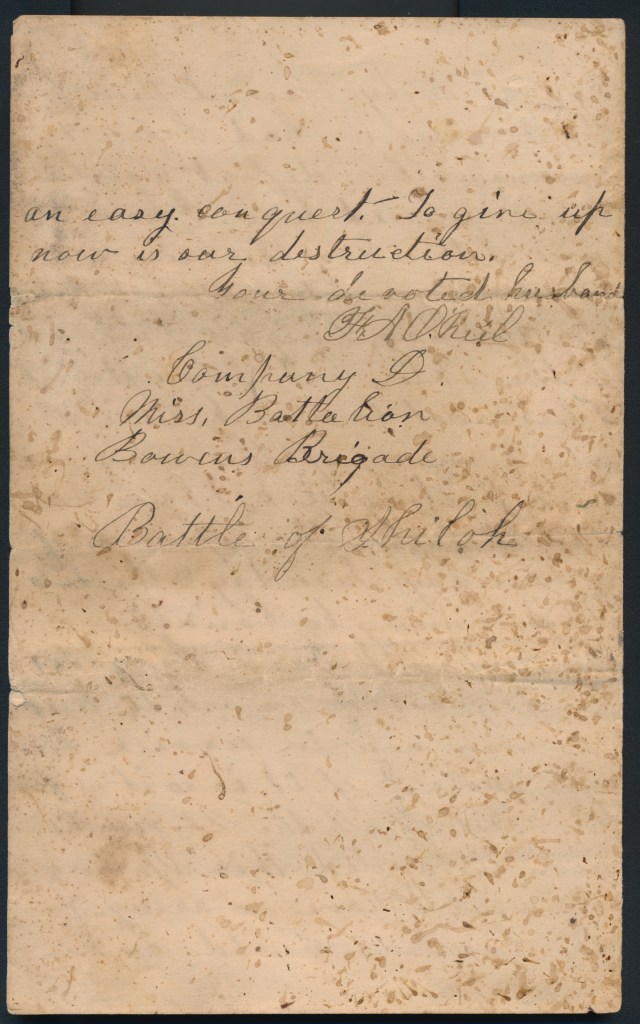 an easy conquest. To give up
now is our destruction.
Your devoted husband
F. A. O.
Company D.
Miss. Battalion
Bowens Brigade
Battle of Shiloh